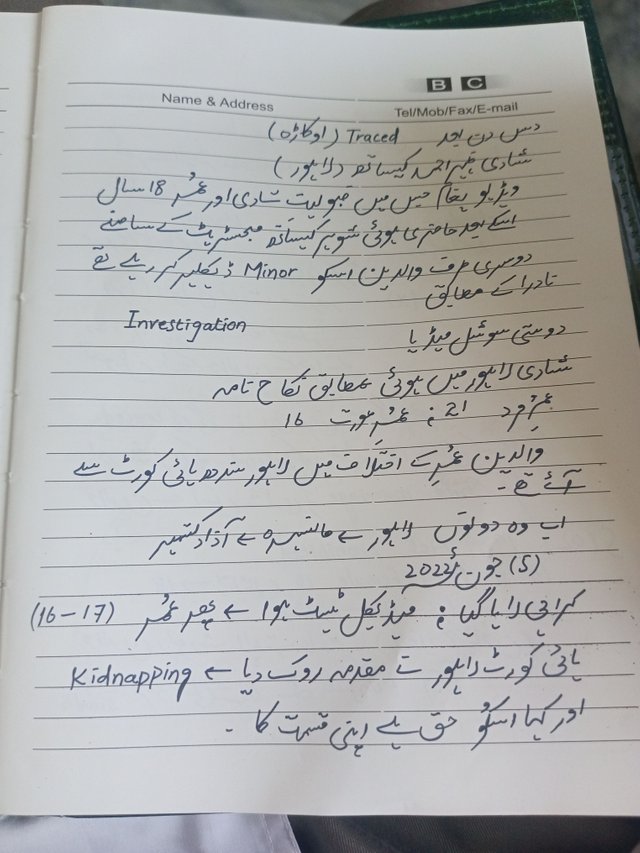 B C
Name & Address Tel/Mob/Fax/E-mail
دس دن بعد Traced (اوکاڑہ)
شادی ظہیر احمد کیساتھ (لاہور)
ویڈیو پیغام جس میں قبولیت شادی اور عمر 18 سال
اسکے بعد حاضری ہوئی شوہر کیساتھ مجسٹریٹ کے سامنے
دوسری طرف والدین اسکو Minor ڈیکلیر کر رہے تھے
نادرا کے مطابق
Investigation
دوستی سوشل میڈیا
شادی لاہور میں ہوئی بمطابق نکاح نامہ
عمر مرد 21 ؛ عمر عورت 16
والدین عمر کے اختلاف میں لاہور سندھ ہائی کورٹ سے
آئے تھے۔
اب وہ دونوں لاہور ← مانسہرہ ← آزاد کشمیر
(5) جون 2022
کراچی لایا گیا ؛ میڈیکل ٹیسٹ ہوا ← پھر عمر (16-17)
ہائی کورٹ لاہور نے مقدمہ روک دیا ← Kidnapping
اور کہا اسکو حق ہے اپنی قسمت کا۔